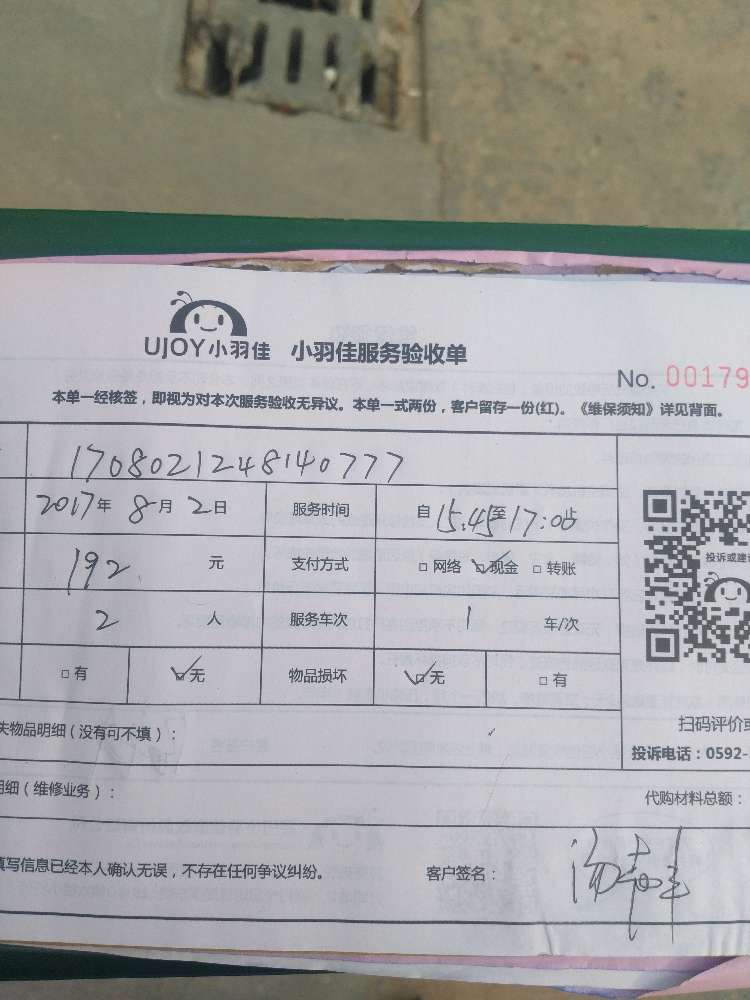 UJOY小羽佳 小羽佳服务验收单
No. 00179
本单一经核签，即视为对本次服务验收无异议。本单一式两份，客户留存一份(红)。《维保须知》详见背面。
1708021248140777
2017年 8月 2日 服务时间 自15:45至17:00止
192 元 支付方式 □网络 ☑现金 □转账
2 人 服务车次 1 车/次
□有 ☑无 物品损坏 ☑无 □有
投诉或建
扫码评价或
失物品明细（没有可不填）：
投诉电话：0592-
明细（维修业务）：
代购材料总额：
填写信息已经本人确认无误，不存在任何争议纠纷。 客户签名：